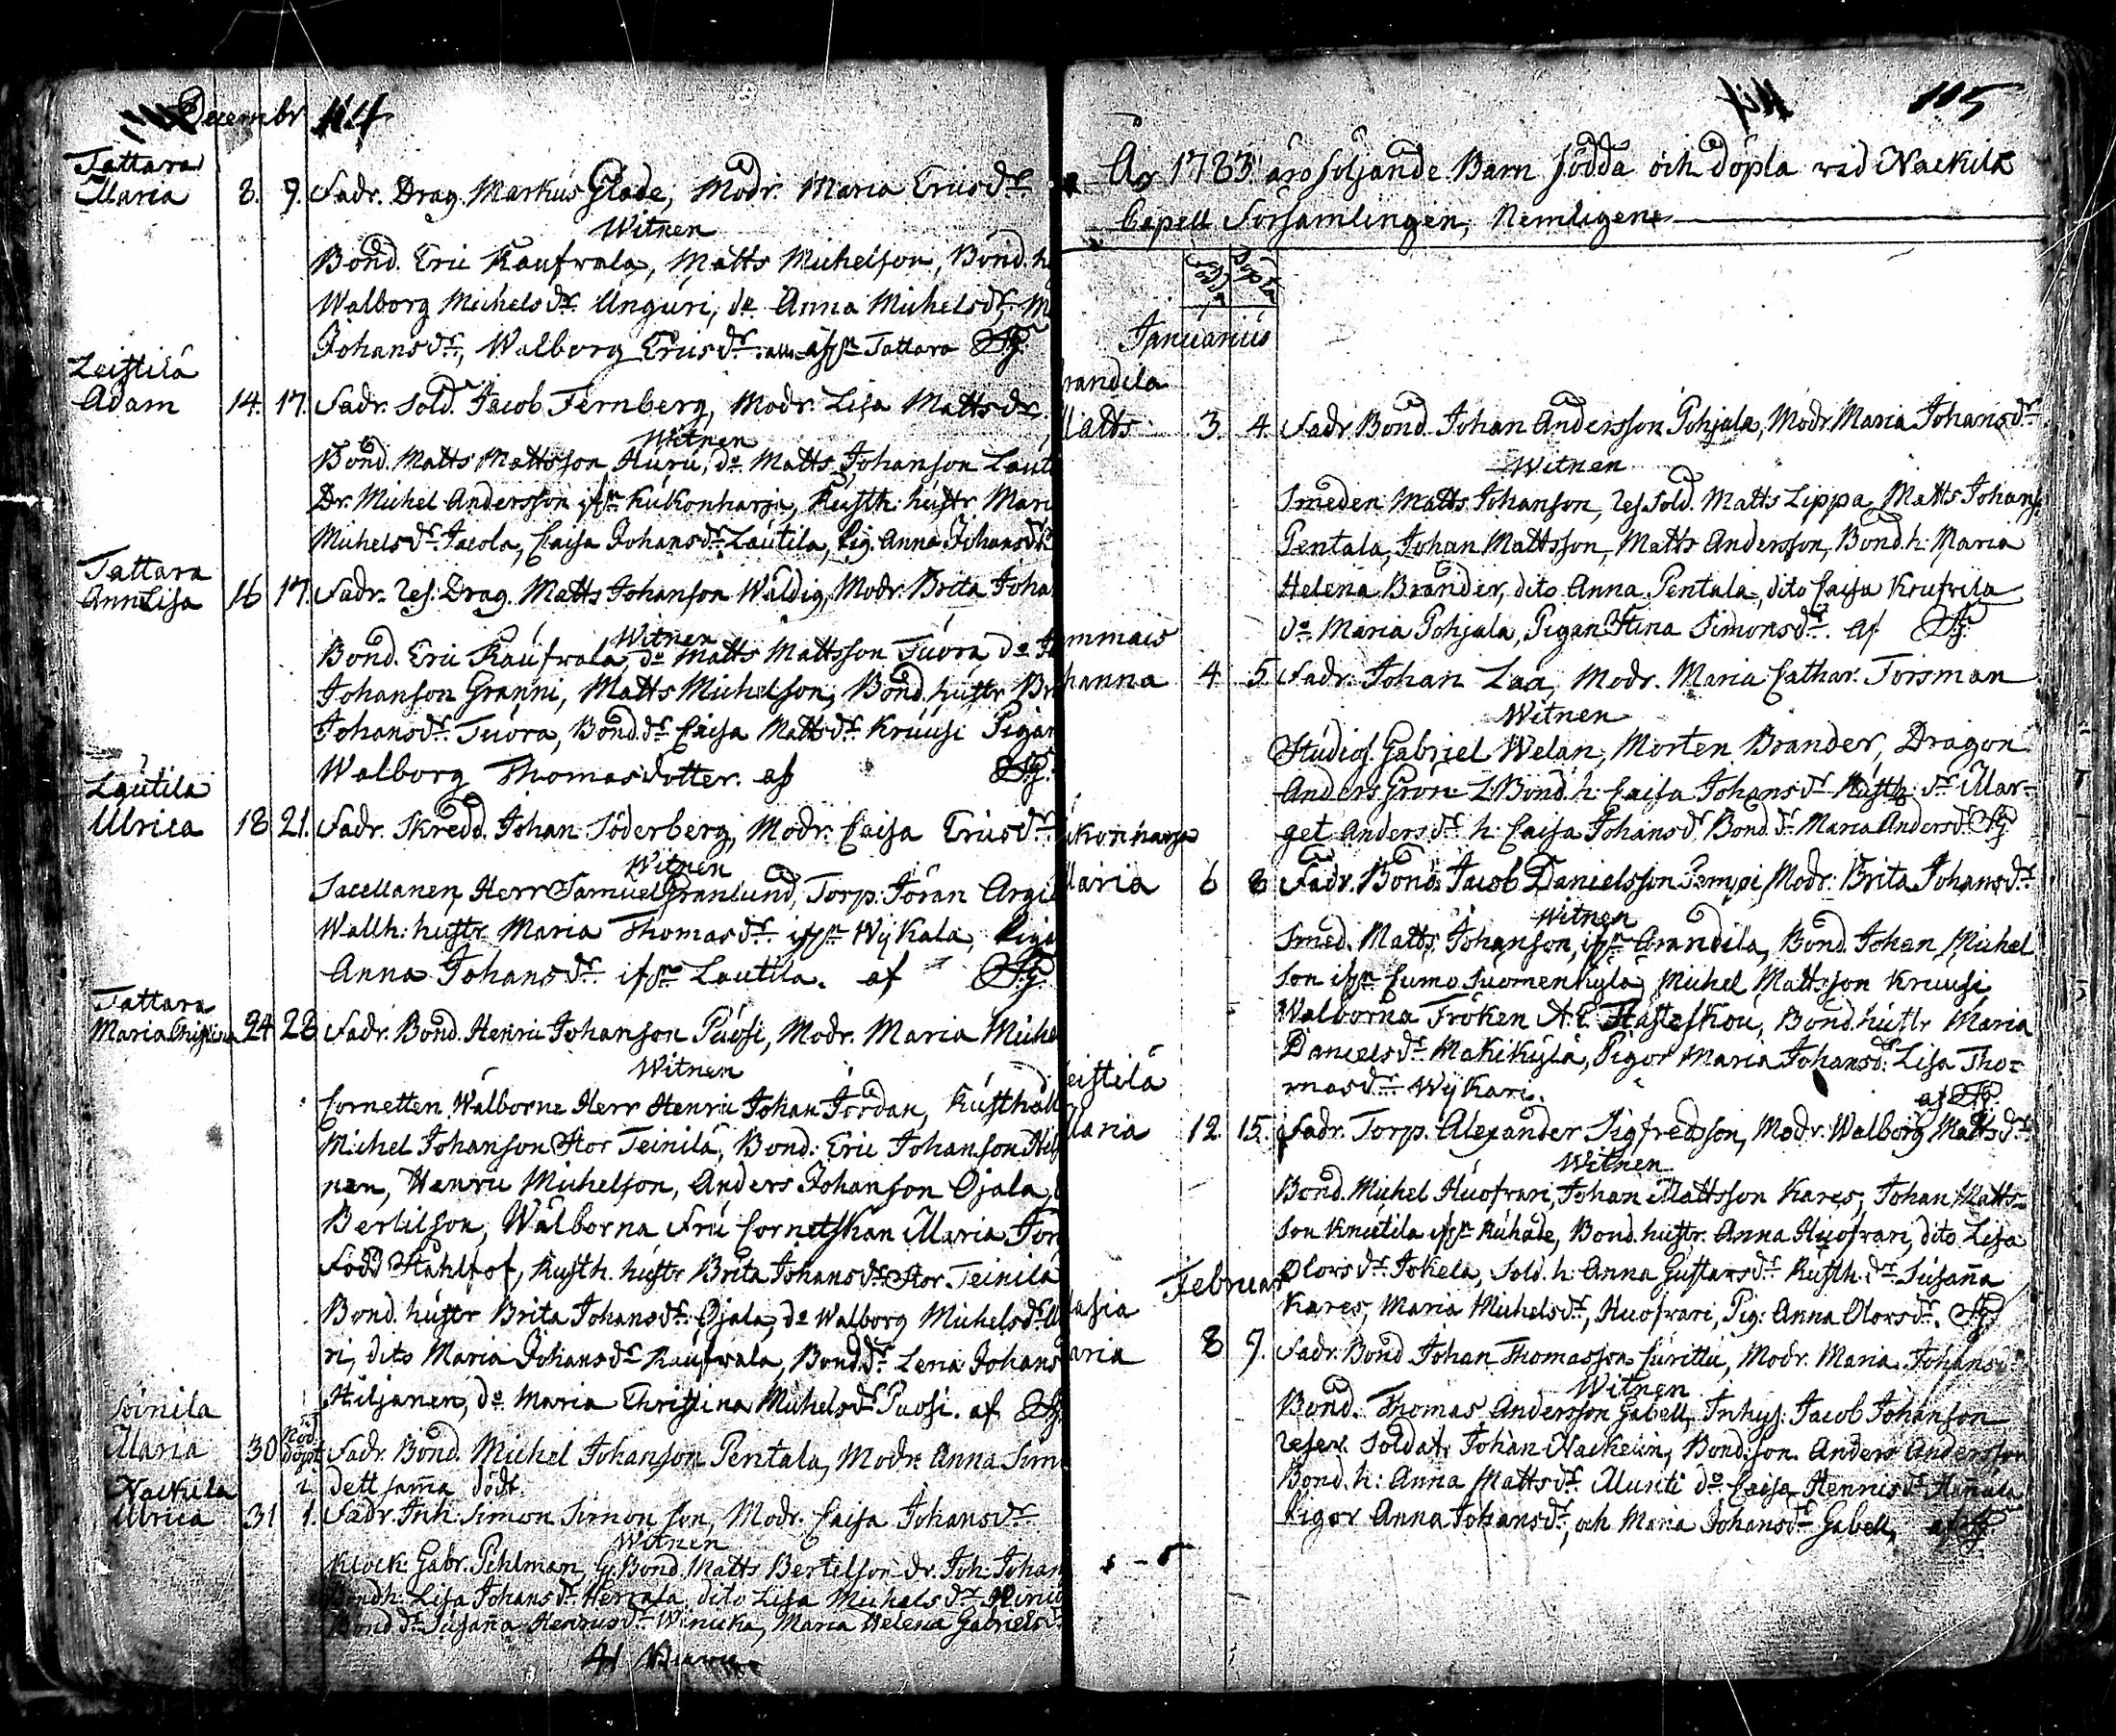 Decembr 114
Tattara
Maria 8. 9. Fadr. Drag. Markus Glade, Modr. Maria Ericsdr
Witnen
Bond. Eric Kaufwala, Matts Michelson, Bond. h
Walborg Michelsdr Unguri, do Anna Michelsdr
Johansdr, Walborg Ericsdr. Tattara
Leistilä
Adam 14. 17. Fadr. Sold. Jacob Fernberg, Modr. Lisa Mattsdr.
Witnen
Bond. Matts Mattsson Huru, do Matts Johanson Lauti
Dr. Michel Andersson ifrn Kukonharja, Rusth: hustr Mari
Michelsdr Jacola, Caisa Johansdr Lautila, Pig. Anna Johansdr
Tattara
AnnaLisa 16 17. Fadr. Res. Drag. Matts Johanson Wäldig, Modr. Brita Joha
Witnen
Bond. Eric Kaufwala, do Matts Mattsson Tuora do
Johanson Granni, Matts Michelson, Bond. hustr Br
Johansdr Tuora, Bond.dr Caisa Mattsdr Kruusi Pigar
Walborg Thomasdotter. af
Lautila
Ulrica 18 21. Fadr. Skredd. Johan Söderberg, Modr. Caisa Ericsdr
Witnen
Sacellanen Herr Samuel Granlund, Torp. Jöran Argi
Wallh: hustr Maria Thomasdr ifrn Wijkala, Piga
Anna Johansdr ifrn Lautila. af
Tattara
Maria Christina 24 26 Fadr. Bond. Henric Johanson Puosi, Modr. Maria Miche
Witnen
Cornetten Wälborne Herr Henric Johan Jordan, Rusthåll
Michel Johanson Stor Teinilä, Bond: Eric Johanson Hil
nen, Henric Michelson, Anders Johanson Ojala,
Bertilson, Wälborna Fru Cornetskan Maria Jor
Född Stahlhof, Rusth. hustr Brita Johansdr Stor Teinilä
Bond. hustr Brita Johansdr Ojala, do Walborg Michelsdr U
ri, dito Maria Johansdr Kaufwala, Bond.dr Lena Johans
Hiljanen, do Maria Christina Michelsdr Puosi. af
Soinila
Maria 30 Nöd döpt Fadr. Bond. Michel Johanson Pentala, Modr. Anna Sim
Dett samma dödt.
Nackila
Ulrica 31 1. Fadr. Inh. Simon Simonson, Modr. Caisa Johansdr
Witnen
Klock. Gabr. Pehlman, Bond. Matts Bertelson dr. Joh. Johan
Bond h. Lisa Johansdr dito Lisa Michelsdr
Bond dr Susanna Henricsdr Winicka, Maria Helena Gabrielsdr
41 Barn
114 115
År 1783 äro följande Barn födda och döpta wid Nackila
Capell Församlingen, Nemligen
Födda Döpta
Januarius
randila
Matts 3. 4. Fadr. Bond. Johan Andersson Pohjala, Modr. Maria Johansdr
Witnen
Smeden Matts Johanson, Res. Sold. Matts Lippa, Matts Johans
Pentala, Johan Mattsson, Matts Andersson, Bond. h. Maria
Helena Brander, dito Anna Pentala, dito Caisa Krufvila
do Maria Pohjala, Pigan Stina Simonsdr. af
mmais
hanna 4 5. Fadr. Johan Laa, Modr. Maria Cathar. Torsman
Witnen
Studios. Gabriel Welan, Morten Brander, Dragon
Anders Grön Bond. h. Caisa Johansdr Rusth. dr Mar-
get Andersdr h. Caisa Johansdr Bond. dr Maria Andersd.
ukonharja
Maria 6 8 Fadr. Bond. Jacob Danielsson Pempi, Modr: Brita Johansdr
Witnen
Smed. Matts Johanson, ifrn Arandila, Bond. Johan Michel
son ifrn Cumo Suomenkylä, Michel Mattsson Kruusi
Walborna Fröken Bond. hustr Maria
Danielsdr Mäkikylä, Pigor Maria Johansd. Lisa Tho=
masdr Wijkari.
af
eistilä
Maria 12. 15. Fadr. Torp. Alexander Sigfredsson, Modr: Walborg Mattsdr
Witnen
Bond. Michel Huofvari, Johan Mattsson Kares, Johan Matts-
son Knutila ifrn Bond. hustr. Anna Huofvari, dito Lisa
Olofsdr Jokela, Sold. h. Anna Gustafsdr Rusth. dr. Susanna
Kares, Maria Michelsdr, Huofvari, Pig: Anna Olofsdr.
Februar
asia
aria 8 9. Fadr. Bond Johan Thomasson Modr. Maria Johansdr
Witnen
Bond. Thomas Andersson Gabell, Inhys: Jacob Johanson
reserv. Soldat. Johan Nackelin, Bond: son. Anders Andersson
Bond. h: Anna Mattsdr Munti do Caisa Henricsdr Hannula
Pigor Anna Johansdr, och Maria Johansdr Gabell, af